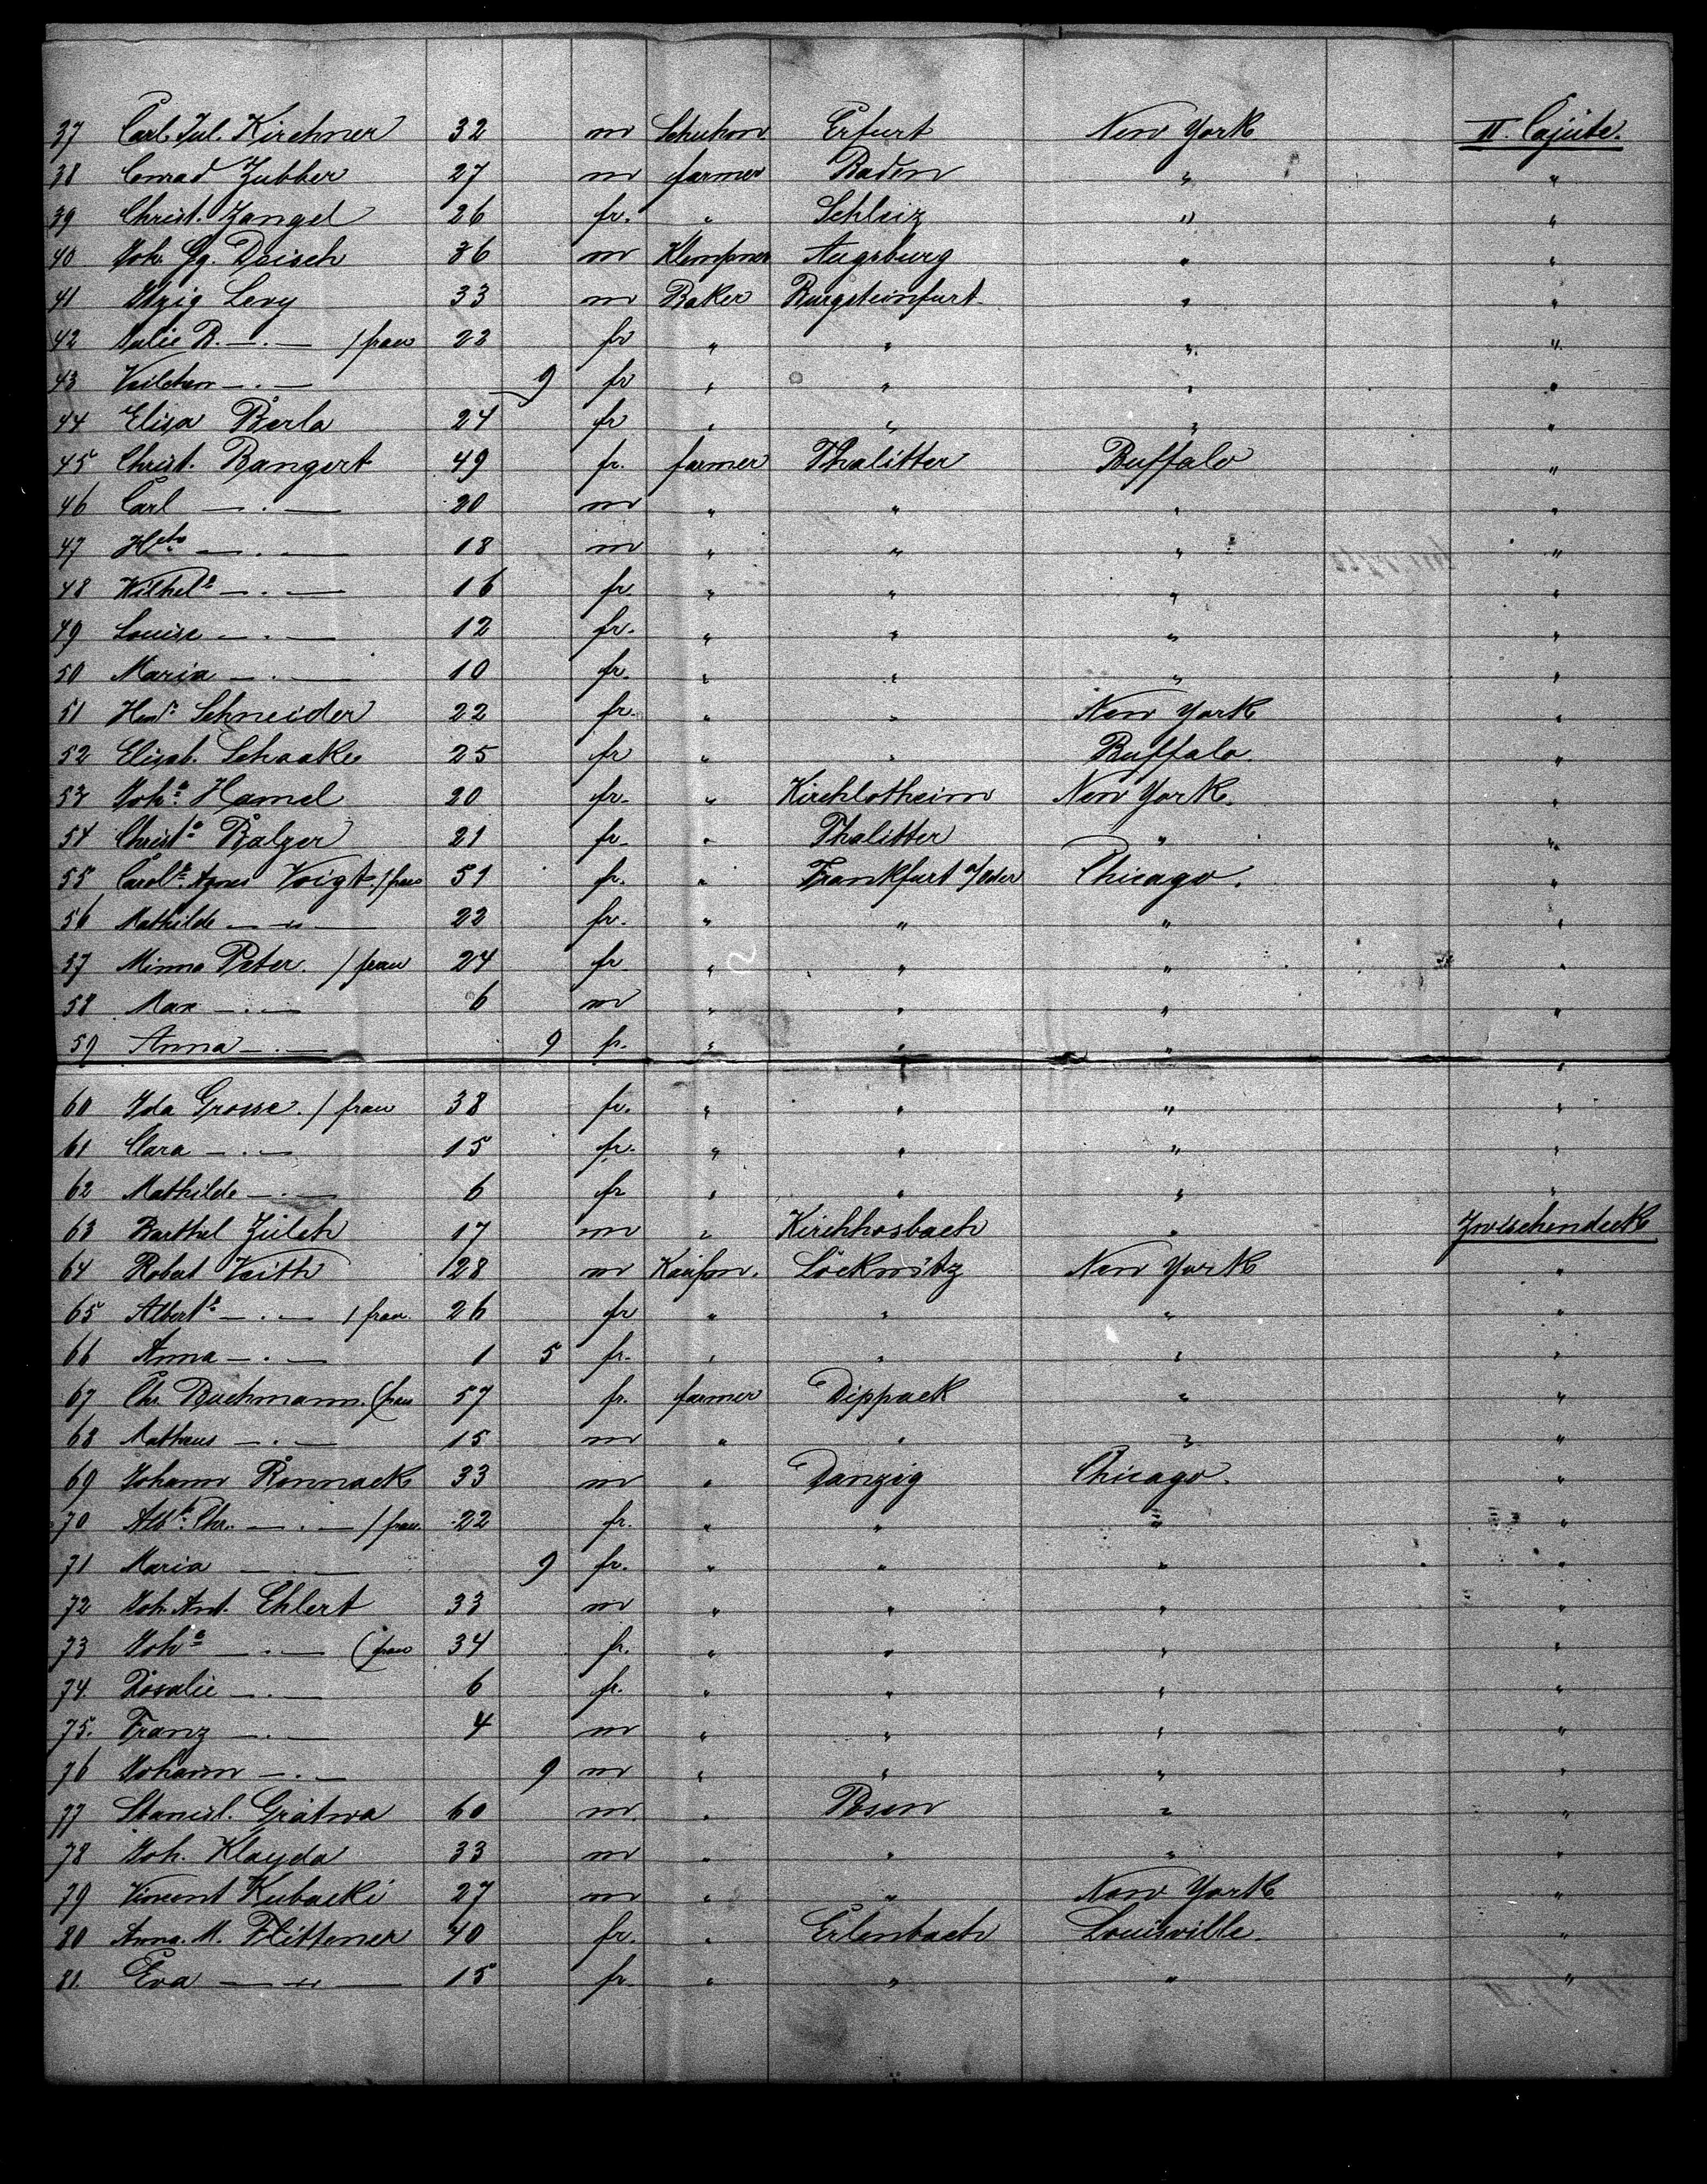 37 Carl Jul. Kirchner 32 m Schuhm Erfurt New York II. Cajüte.
38 Conrad Zubber 27 m farmer Baden " "
39 Christ. Zangel 26 fr. " Schleiz " "
40 Joh. Gg. Deisch 36 m Klempner Augsburg " "
41 Itzig Levy 33 m Baker Burgsteinfurt " "
42 Julie R. — . — / frau 22 fr " " " "
43 Veilchen — . — 9 fr " " " "
44 Elisa Berla 24 fr " " " "
45 Christ. Bangert 49 fr. farmer Thalitter Buffalo "
46 Carl — . — 20 m " " " "
47 — . — 18 m " " " "
48 Wilhele — . — 16 fr. " " " "
49 Louise — . — 12 fr. " " " "
50 Maria — . — 10 fr. " " " "
51 Schneider 22 fr. " " New York "
52 Elisab. Schaake 25 fr " " Buffalo. "
53 Johe Hamel 20 fr. " Kirchlotheim New York. "
54 Christe Balzer 21 fr. " Thalitter " "
55 Carole Agnes Voigt / frau 51 fr. " Frankfurt a/oder Chicago. "
56 Mathilde — " — 22 fr. " " " "
57 Minna Peter. / frau 24 fr. " " " "
58 Max — . — 6 m " " " "
59 Anna — . — 9 fr. " " " "
60 Ida Grosse. / frau 38 fr. " " " "
61 Clara — . — 15 fr. " " " "
62 Mathilde — . — 6 fr " " " "
63 Barthel Zülch 17 m " Kirchhosbach " Zwischendeck
64 Robert Veith 28 m Kaufm. Löcknitz New York "
65 Alberte — . — / frau. 26 fr " " " "
66 Anna — . — 1 5 fr. " " " "
67 Chr. Buchmann. (frau 57 fr. farmer Dippack " "
68 Matheus — . — 15 m " " " "
69 Johann Ronnack 33 m " Danzig Chicago. "
70 Albe Chr. — . — / frau. 22 fr. " " " "
71 Maria — . — 9 fr. " " " "
72 Joh. Ant. Ehlert 33 m " " " "
73 Johe — . — (frau 34 fr. " " " "
74. Rosalie — . — 6 fr. " " " "
75. Franz — . — 4 m " " " "
76 Johann — . — 9 m " " " "
77 Stanisl. Gratwa 60 m. " Posen " "
78 Joh. Klayda 33 m " " " "
79 Vincent Kubacki 27 m " " New York "
80 Anna. M. Flittner 40 fr. " Erlenbach Louisville. "
81. Eva — " — 15 fr. " " " "